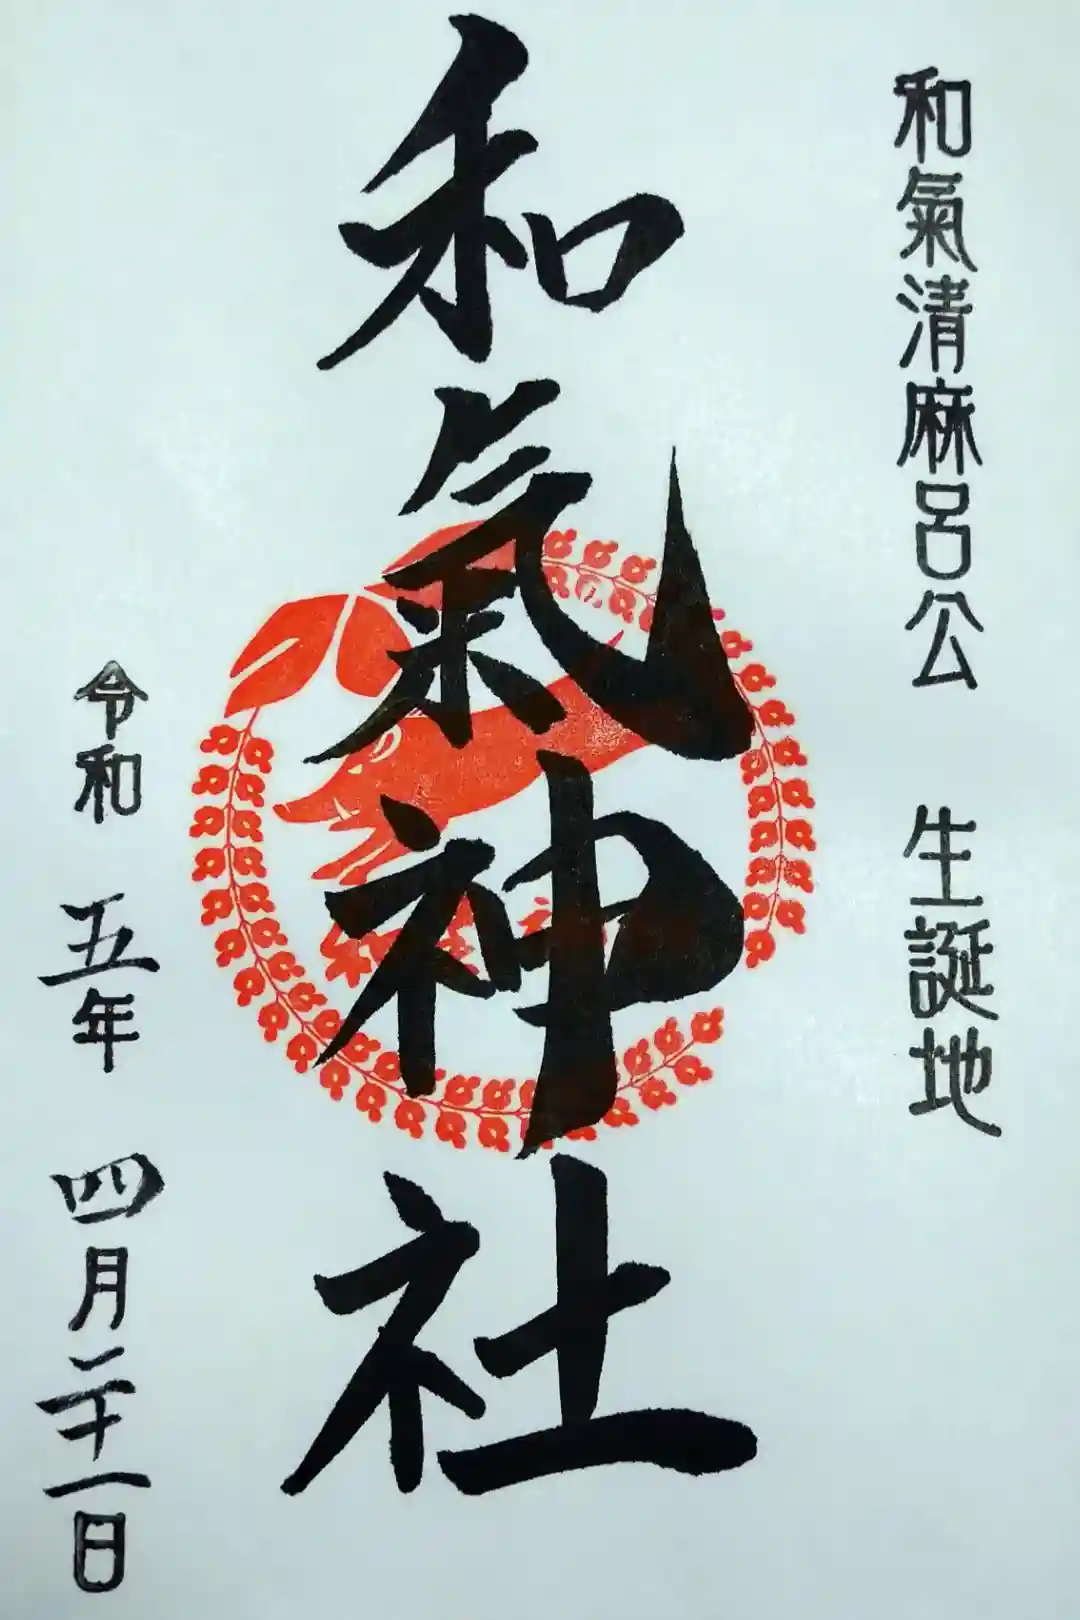 和氣清麻呂公　生誕地
和氣神社
令和　五年　四月二十一日